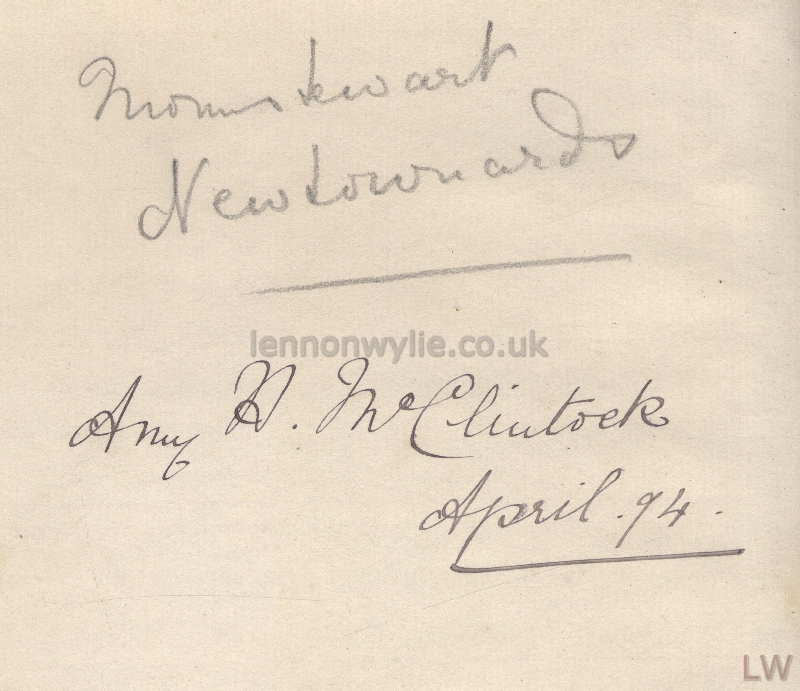 Mountstewart
Newtownards
lennonwylie.co.uk
Amy H. McClintock
April. 94.
LW